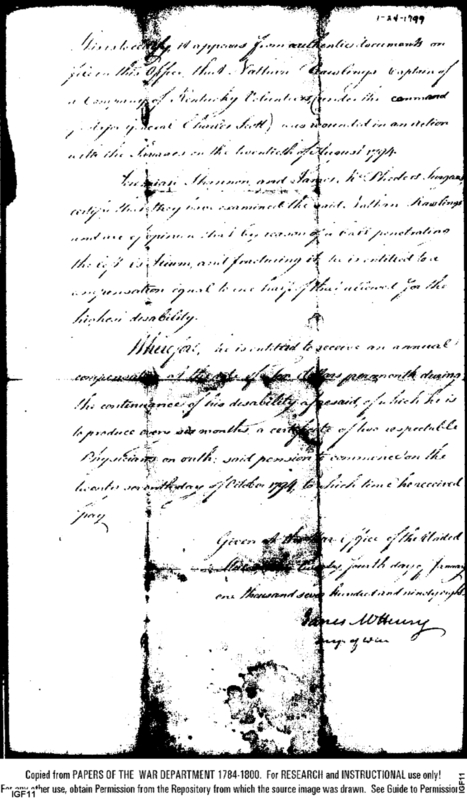 1-24-1799
it appears from authentic documents on
file in this Office, that Nathan Rawlings Captain of
a Company of Kentucky Volunteers (under the command
Charles Scott) was wounded in an action
with the on the twentieth of August 1794.
Shannon, and James Surgeons
certify that they have examined the said Nathan Rawlings
and are of opinion that by reason of a ball penetrating
the left and fracturing it, he is entitled to a
compensation equal to one half of that allowed for the
highest disability.
Wherefore, he is entitled to receive an annual
compensation at the rate of dollars per month during
the continuance of his disability aforesaid, of which he is
to produce every six months, a certificate of two respectable
Physicians on oath: said pension to commence on the
twenty seventh day of October 1794, to which time he received
pay
Given at the War Office of the United
States this twenty fourth day of
one thousand seven hundred and ninety
James McHenry
Secy of War
Copied from PAPERS OF THE WAR DEPARTMENT 1784-1800. For RESEARCH and INSTRUCTIONAL use only!
For any other use, obtain Permission from the Repository from which the source image was drawn. See Guide to Permission
IGF11
IGF11